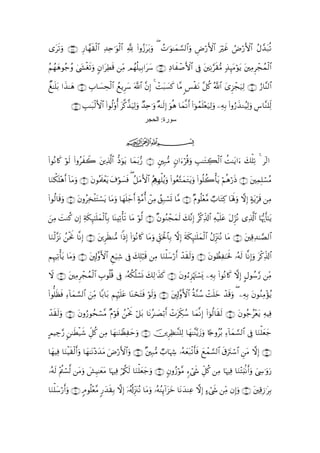 تُبَدَّلُ ٱلْأَرْضُ غَيْرَ ٱلْأَرْضِ وَٱلسَّمَٰوَٰتُ ۖ وَبَرَزُوا۟ لِلَّهِ ٱلْوَٰحِدِ ٱلْقَهَّارِ ۝ وَتَرَى
ٱلْمُجْرِمِينَ يَوْمَئِذٍ مُّقَرَّنِينَ فِى ٱلْأَصْفَادِ ۝ سَرَابِيلُهُم مِّن قَطِرَانٍ وَتَغْشَىٰ وُجُوهَهُمُ
ٱلنَّارُ ۝ لِيَجْزِىَ ٱللَّهُ كُلَّ نَفْسٍ مَّا كَسَبَتْ ۚ إِنَّ ٱللَّهَ سَرِيعُ ٱلْحِسَابِ ۝ هَٰذَا بَلَٰغٌ
لِّلنَّاسِ وَلِيُنذَرُوا۟ بِهِۦ وَلِيَعْلَمُوٓا۟ أَنَّمَا هُوَ إِلَٰهٌ وَٰحِدٌ وَلِيَذَّكَّرَ أُو۟لُوا۟ ٱلْأَلْبَٰبِ ۝
سورة: الحجر
بِسْمِ ٱللَّهِ ٱلرَّحْمَٰنِ ٱلرَّحِيمِ
الٓر ۚ تِلْكَ ءَايَٰتُ ٱلْكِتَٰبِ وَقُرْءَانٍ مُّبِينٍ ۝ رُّبَمَا يَوَدُّ ٱلَّذِينَ كَفَرُوا۟ لَوْ كَانُوا۟
مُسْلِمِينَ ۝ ذَرْهُمْ يَأْكُلُوا۟ وَيَتَمَتَّعُوا۟ وَيُلْهِهِمُ ٱلْأَمَلُ ۖ فَسَوْفَ يَعْلَمُونَ ۝ وَمَآ أَهْلَكْنَا
مِن قَرْيَةٍ إِلَّا وَلَهَا كِتَابٌ مَّعْلُومٌ ۝ مَّا تَسْبِقُ مِنْ أُمَّةٍ أَجَلَهَا وَمَا يَسْتَـْٔخِرُونَ ۝ وَقَالُوا۟
يَٰٓأَيُّهَا ٱلَّذِى نُزِّلَ عَلَيْهِ ٱلذِّكْرُ إِنَّكَ لَمَجْنُونٌ ۝ لَّوْ مَا تَأْتِينَا بِٱلْمَلَٰٓئِكَةِ إِن كُنتَ مِنَ
ٱلصَّٰدِقِينَ ۝ مَا نُنَزِّلُ ٱلْمَلَٰٓئِكَةَ إِلَّا بِٱلْحَقِّ وَمَا كَانُوٓا۟ إِذًا مُّنظَرِينَ ۝ إِنَّا نَحْنُ نَزَّلْنَا
ٱلذِّكْرَ وَإِنَّا لَهُۥ لَحَٰفِظُونَ ۝ وَلَقَدْ أَرْسَلْنَا مِن قَبْلِكَ فِى شِيَعِ ٱلْأَوَّلِينَ ۝ وَمَا يَأْتِيهِم
مِّن رَّسُولٍ إِلَّا كَانُوا۟ بِهِۦ يَسْتَهْزِءُونَ ۝ كَذَٰلِكَ نَسْلُكُهُۥ فِى قُلُوبِ ٱلْمُجْرِمِينَ ۝ لَا
يُؤْمِنُونَ بِهِۦ ۖ وَقَدْ خَلَتْ سُنَّةُ ٱلْأَوَّلِينَ ۝ وَلَوْ فَتَحْنَا عَلَيْهِم بَابًا مِّنَ ٱلسَّمَآءِ فَظَلُّوا۟
فِيهِ يَعْرُجُونَ ۝ لَقَالُوٓا۟ إِنَّمَا سُكِّرَتْ أَبْصَٰرُنَا بَلْ نَحْنُ قَوْمٌ مَّسْحُورُونَ ۝ وَلَقَدْ
جَعَلْنَا فِى ٱلسَّمَآءِ بُرُوجًا وَزَيَّنَّٰهَا لِلنَّٰظِرِينَ ۝ وَحَفِظْنَٰهَا مِن كُلِّ شَيْطَٰنٍ رَّجِيمٍ
۝ إِلَّا مَنِ ٱسْتَرَقَ ٱلسَّمْعَ فَأَتْبَعَهُۥ شِهَابٌ مُّبِينٌ ۝ وَٱلْأَرْضَ مَدَدْنَٰهَا وَأَلْقَيْنَا فِيهَا
رَوَٰسِىَ وَأَنۢبَتْنَا فِيهَا مِن كُلِّ شَىْءٍ مَّوْزُونٍ ۝ وَجَعَلْنَا لَكُمْ فِيهَا مَعَٰيِشَ وَمَن لَّسْتُمْ لَهُۥ
بِرَٰزِقِينَ ۝ وَإِن مِّن شَىْءٍ إِلَّا عِندَنَا خَزَآئِنُهُۥ وَمَا نُنَزِّلُهُۥٓ إِلَّا بِقَدَرٍ مَّعْلُومٍ ۝ وَأَرْسَلْنَا